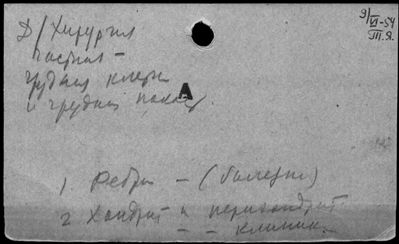 Д/Хирургия
частная –
грудная клетка
и грудная полость.
А
9/VI-54
III.Я.
1. Ребра – (болезни)
2. Хондрит и перихондрит
– – клиник.